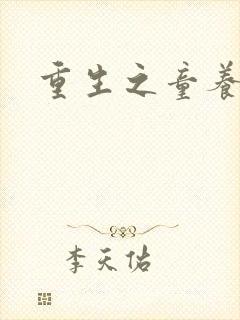 重生之童养
李天佑